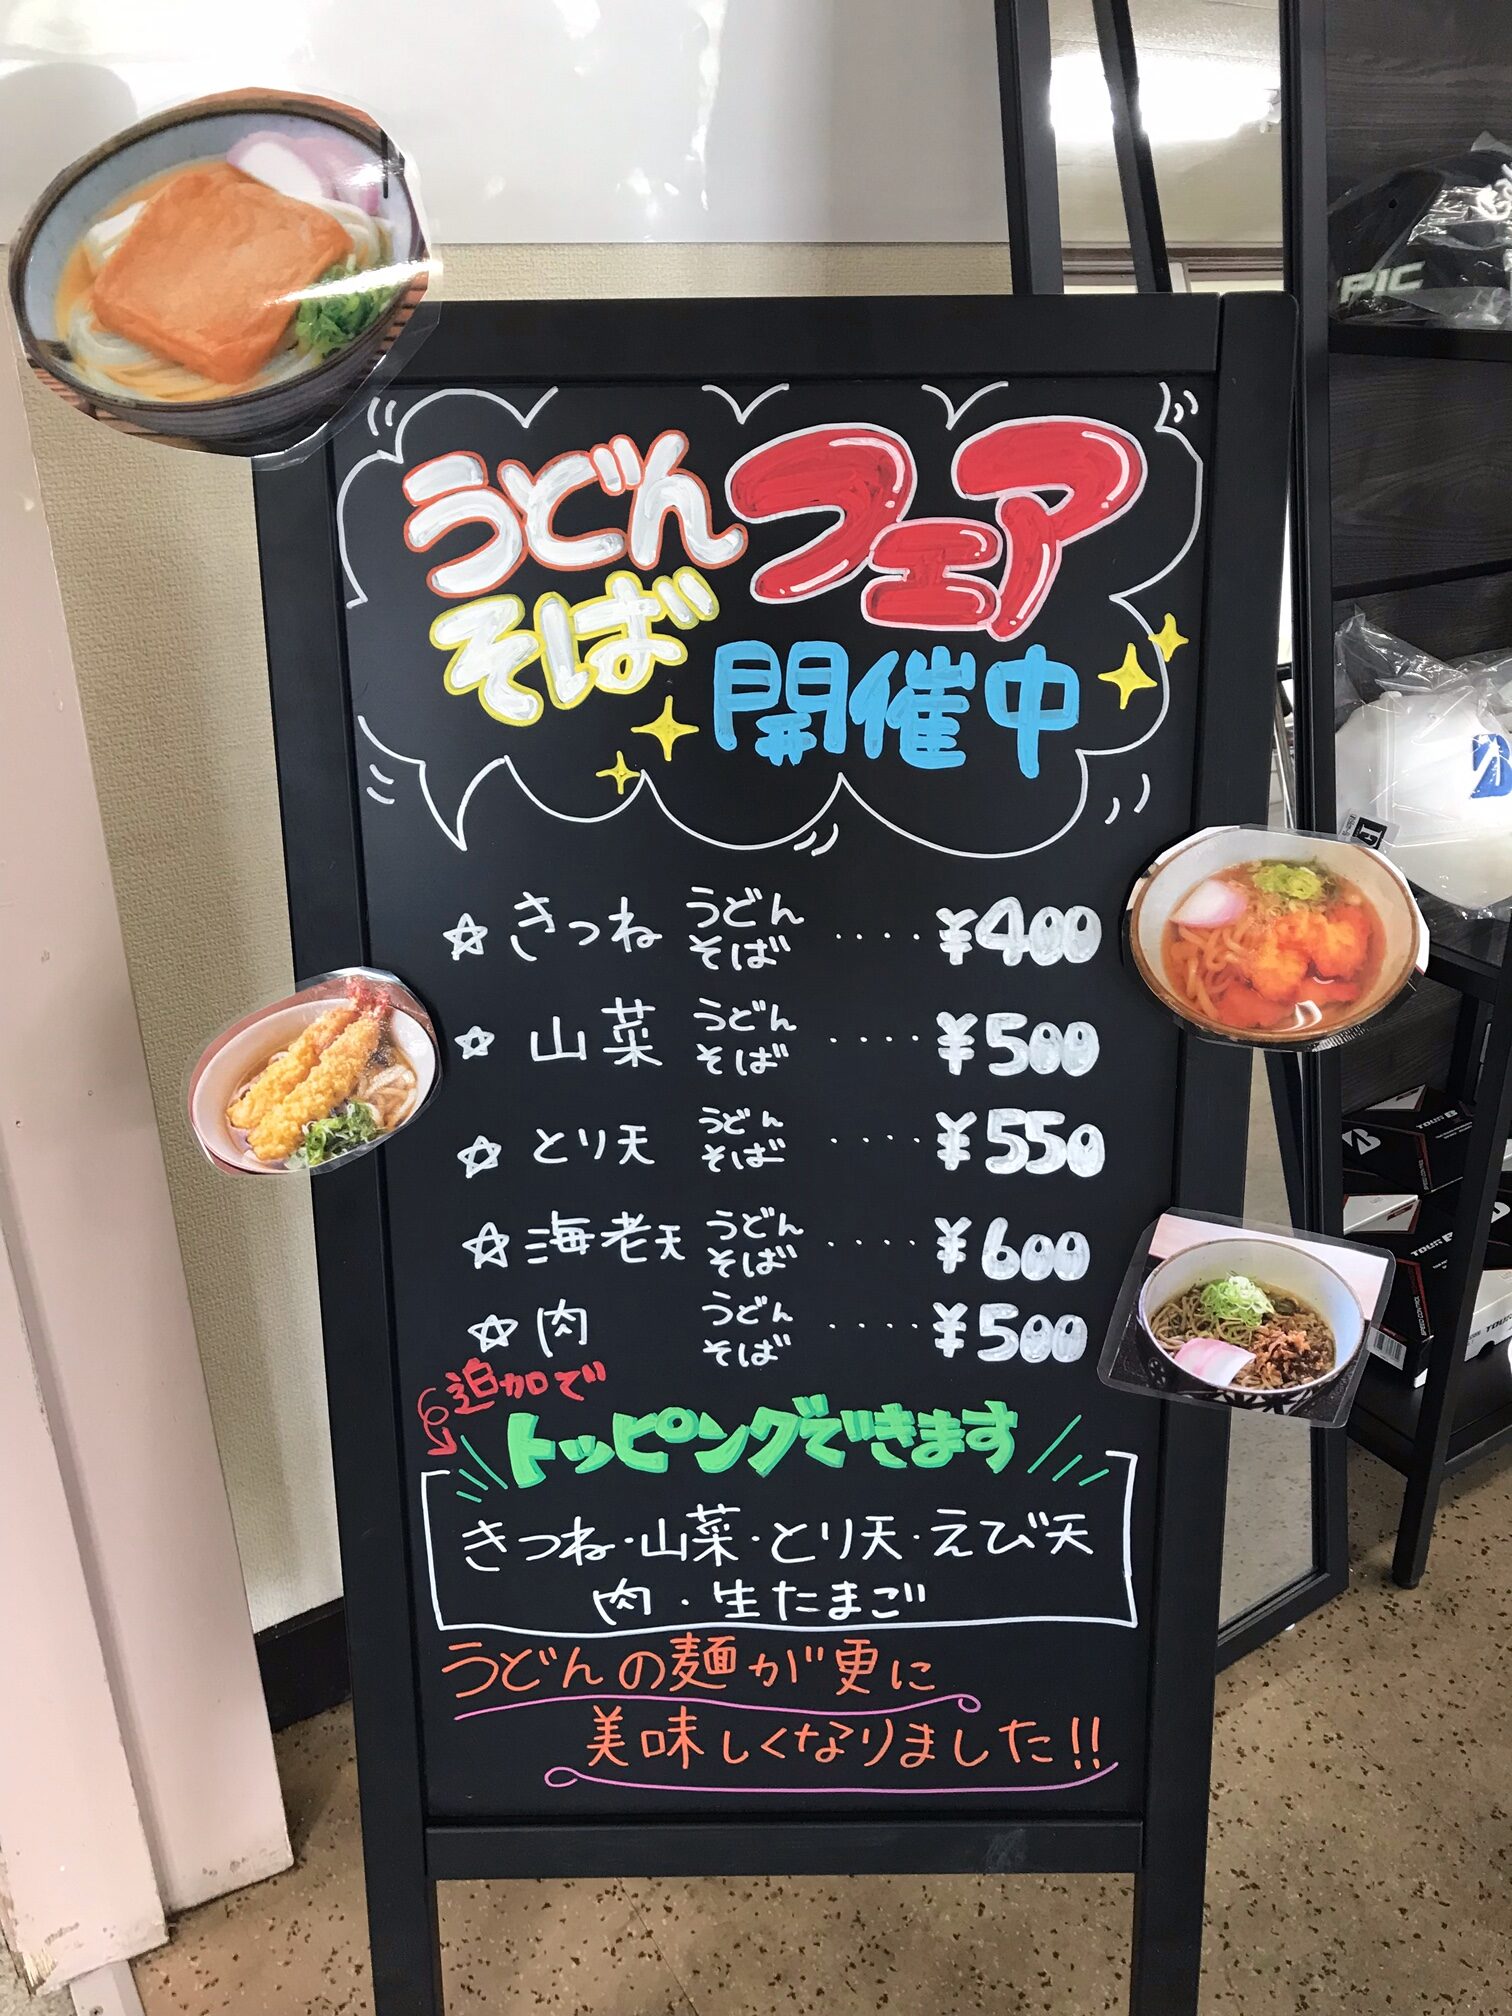 うどん
そば
フェア
開催中
☆ きつね うどん そば ････ ¥400
☆ 山菜 うどん そば ････ ¥500
☆ とり天 うどん そば ････ ¥550
☆ 海老天 うどん そば ････ ¥600
☆ 肉 うどん そば ････ ¥500
追加で
トッピングできます
きつね・山菜・とり天・えび天
肉・生たまご
うどんの麺が更に
美味しくなりました!!
PIC
B
TOUR B
TOUR B
TOUR